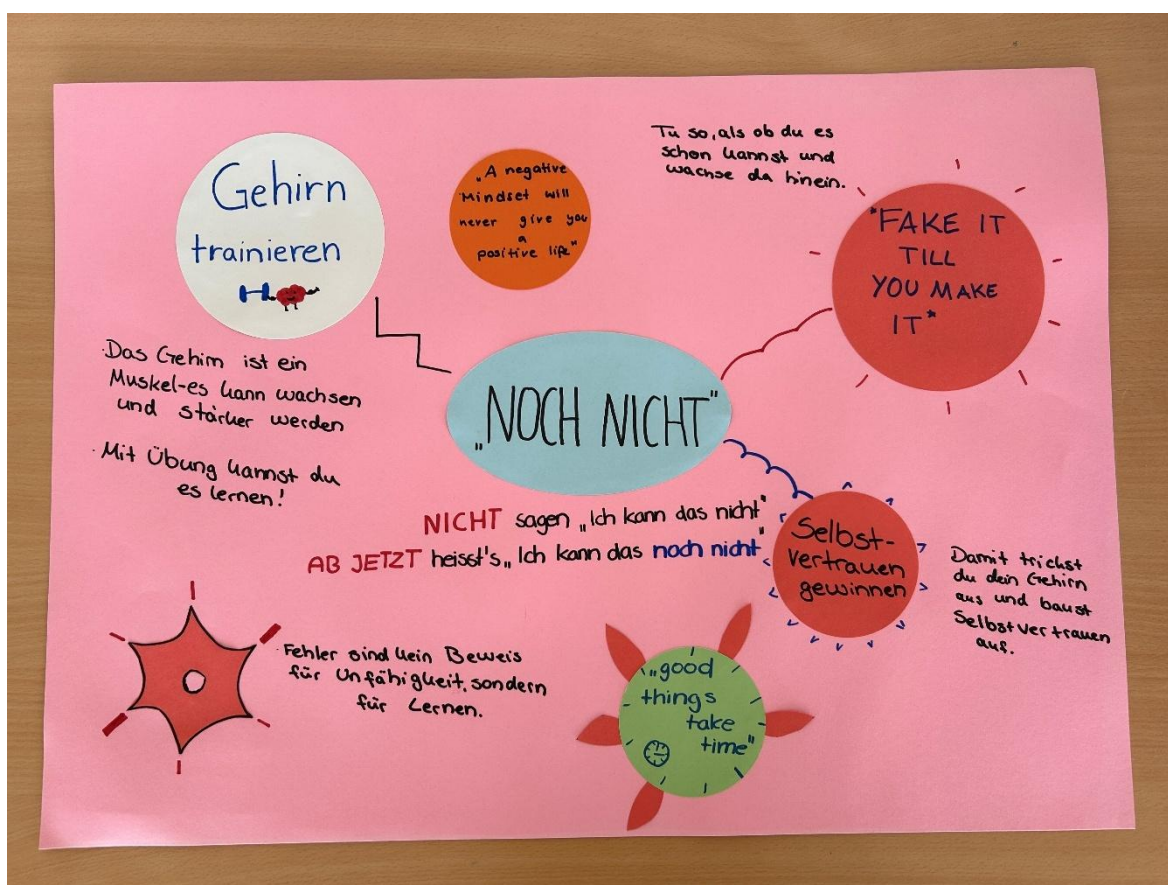 Gehirn
trainieren
· Das Gehirn ist ein
Muskel-es kann wachsen
und stärker werden
· Mit Übung kannst du
es lernen!
„A negative
Mindset will
never give you
a
positive life"
Tu so, als ob du es
schon kannst und
wachse da hinein.
"FAKE IT
TILL
YOU MAKE
IT"
„NOCH NICHT"
NICHT sagen „Ich kann das nicht"
AB JETZT heisst's „Ich kann das noch nicht"
Selbst-
vertrauen
gewinnen
Damit trickst
du dein Gehirn
aus und baust
Selbstvertrauen
auf.
· Fehler sind kein Beweis
für Unfähigkeit, sondern
für Lernen.
„good
things
take
time"